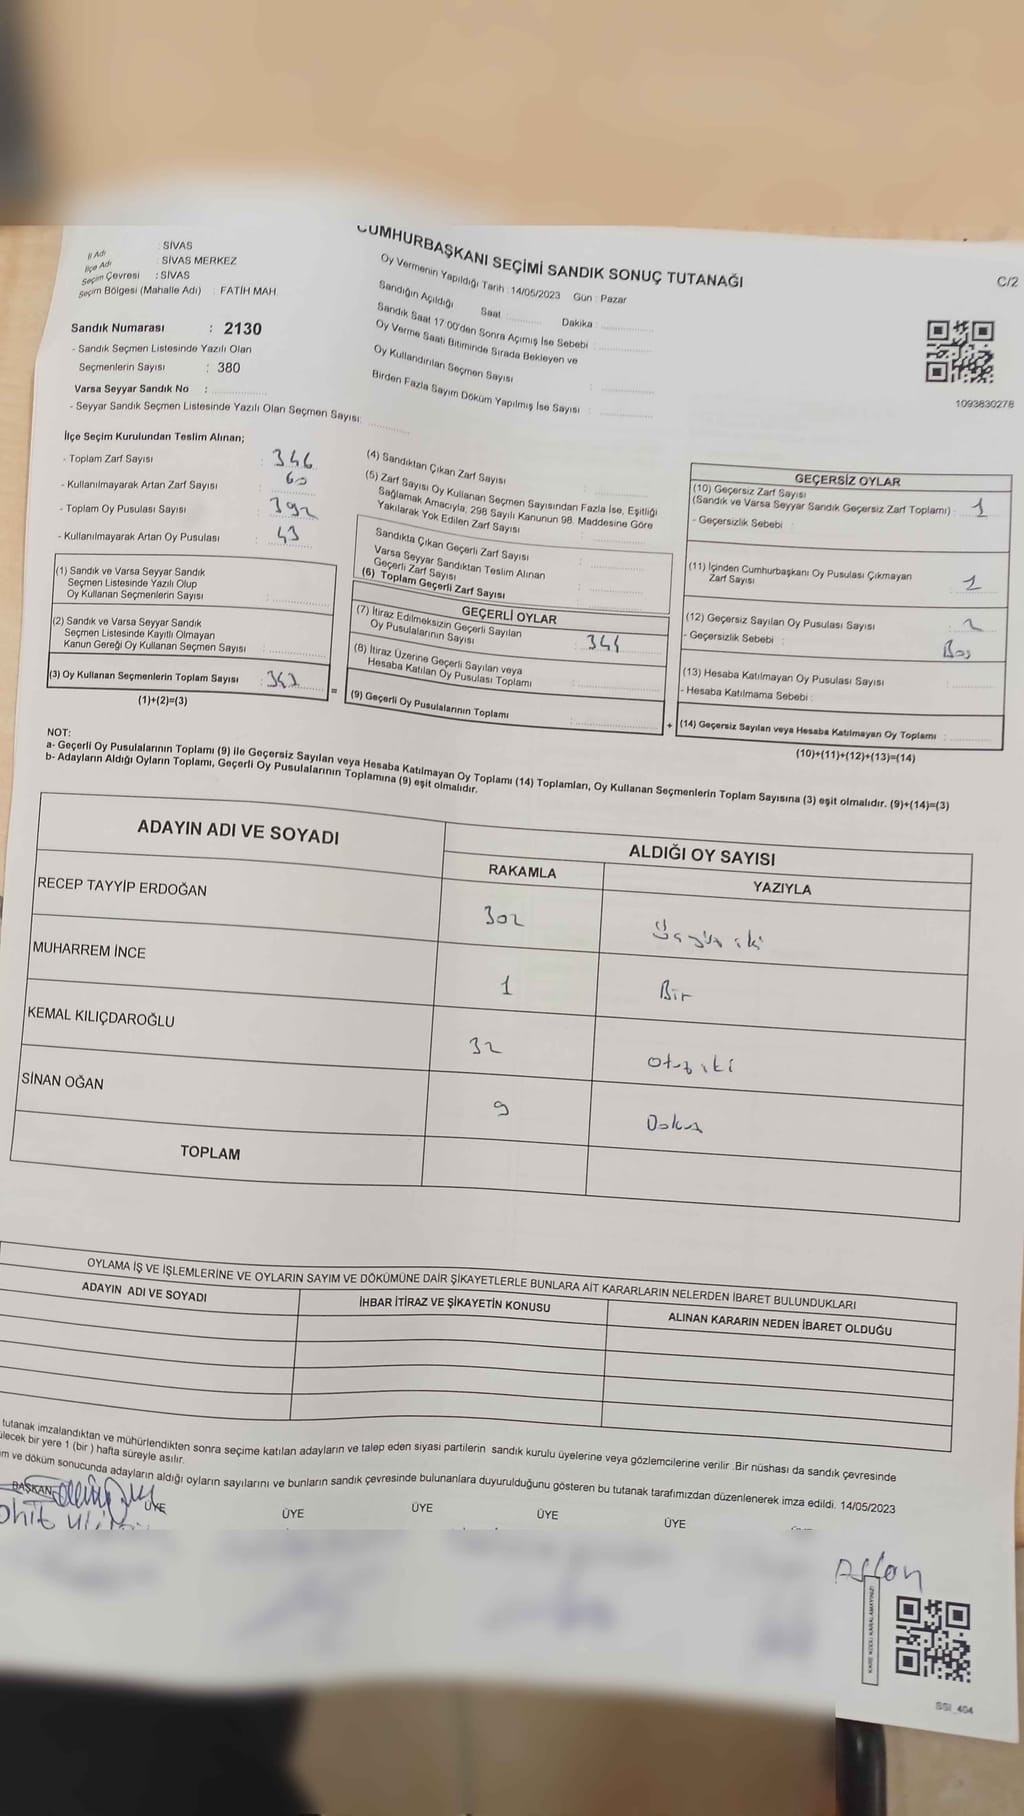 CUMHURBAŞKANI SEÇİMİ SANDIK SONUÇ TUTANAĞI
C/2
İl Adı : SİVAS
İlçe Adı : SİVAS MERKEZ
Seçim Çevresi : SİVAS
Seçim Bölgesi (Mahalle Adı) : FATİH MAH.
Sandık Numarası : 2130
- Sandık Seçmen Listesinde Yazılı Olan
Seçmenlerin Sayısı : 380
Varsa Seyyar Sandık No :
- Seyyar Sandık Seçmen Listesinde Yazılı Olan Seçmen Sayısı:
Oy Vermenin Yapıldığı Tarih : 14/05/2023 Gün : Pazar
Sandığın Açıldığı Saat Dakika :
Sandık Saat 17:00'den Sonra Açımış İse Sebebi :
Oy Verme Saati Bitiminde Sırada Bekleyen ve
Oy Kullandırılan Seçmen Sayısı :
Birden Fazla Sayım Döküm Yapılmış İse Sayısı :
1093830278
İlçe Seçim Kurulundan Teslim Alınan;
- Toplam Zarf Sayısı :
- Kullanılmayarak Artan Zarf Sayısı : 60
- Toplam Oy Pusulası Sayısı : 392
- Kullanılmayarak Artan Oy Pusulası : 43
(1) Sandık ve Varsa Seyyar Sandık
Seçmen Listesinde Yazılı Olup
Oy Kullanan Seçmenlerin Sayısı :
(2) Sandık ve Varsa Seyyar Sandık
Seçmen Listesinde Kayıtlı Olmayan
Kanun Gereği Oy Kullanan Seçmen Sayısı :
(3) Oy Kullanan Seçmenlerin Toplam Sayısı :
(1)+(2)=(3)
=
(4) Sandıktan Çıkan Zarf Sayısı :
(5) Zarf Sayısı Oy Kullanan Seçmen Sayısından Fazla İse, Eşitliği
Sağlamak Amacıyla, 298 Sayılı Kanunun 98. Maddesine Göre
Yakılarak Yok Edilen Zarf Sayısı :
Sandıkta Çıkan Geçerli Zarf Sayısı :
Varsa Seyyar Sandıktan Teslim Alınan
Geçerli Zarf Sayısı :
(6) Toplam Geçerli Zarf Sayısı :
GEÇERLİ OYLAR
(7) İtiraz Edilmeksizin Geçerli Sayılan
Oy Pusulalarının Sayısı :
(8) İtiraz Üzerine Geçerli Sayılan veya
Hesaba Katılan Oy Pusulası Toplamı :
(9) Geçerli Oy Pusulalarının Toplamı :
+
GEÇERSİZ OYLAR
(10) Geçersiz Zarf Sayısı
(Sandık ve Varsa Seyyar Sandık Geçersiz Zarf Toplamı) : 1
- Geçersizlik Sebebi :
(11) İçinden Cumhurbaşkanı Oy Pusulası Çıkmayan
Zarf Sayısı : 1
(12) Geçersiz Sayılan Oy Pusulası Sayısı : 2
- Geçersizlik Sebebi : Boş
(13) Hesaba Katılmayan Oy Pusulası Sayısı :
- Hesaba Katılmama Sebebi :
(14) Geçersiz Sayılan veya Hesaba Katılmayan Oy Toplamı :
(10)+(11)+(12)+(13)=(14)
NOT:
a- Geçerli Oy Pusulalarının Toplamı (9) ile Geçersiz Sayılan veya Hesaba Katılmayan Oy Toplamı (14) Toplamları, Oy Kullanan Seçmenlerin Toplam Sayısına (3) eşit olmalıdır. (9)+(14)=(3)
b- Adayların Aldığı Oyların Toplamı, Geçerli Oy Pusulalarının Toplamına (9) eşit olmalıdır.
ADAYIN ADI VE SOYADI
ALDIĞI OY SAYISI
RAKAMLA YAZIYLA
RECEP TAYYİP ERDOĞAN 302 Üçyüz iki
MUHARREM İNCE 1 Bir
KEMAL KILIÇDAROĞLU 32 Otuz iki
SİNAN OĞAN 9 Dokuz
TOPLAM
OYLAMA İŞ VE İŞLEMLERİNE VE OYLARIN SAYIM VE DÖKÜMÜNE DAİR ŞİKAYETLERLE BUNLARA AİT KARARLARIN NELERDEN İBARET BULUNDUKLARI
ADAYIN ADI VE SOYADI İHBAR İTİRAZ VE ŞİKAYETİN KONUSU ALINAN KARARIN NEDEN İBARET OLDUĞU
tutanak imzalandıktan ve mühürlendikten sonra seçime katılan adayların ve talep eden siyasi partilerin sandık kurulu üyelerine veya gözlemcilerine verilir .Bir nüshası da sandık çevresinde
bir yere 1 (bir ) hafta süreyle asılır.
ve döküm sonucunda adayların aldığı oyların sayılarını ve bunların sandık çevresinde bulunanlara duyurulduğunu gösteren bu tutanak tarafımızdan düzenlenerek imza edildi. 14/05/2023
BAŞKAN ÜYE ÜYE ÜYE ÜYE ÜYE
Aslan
SSI_404